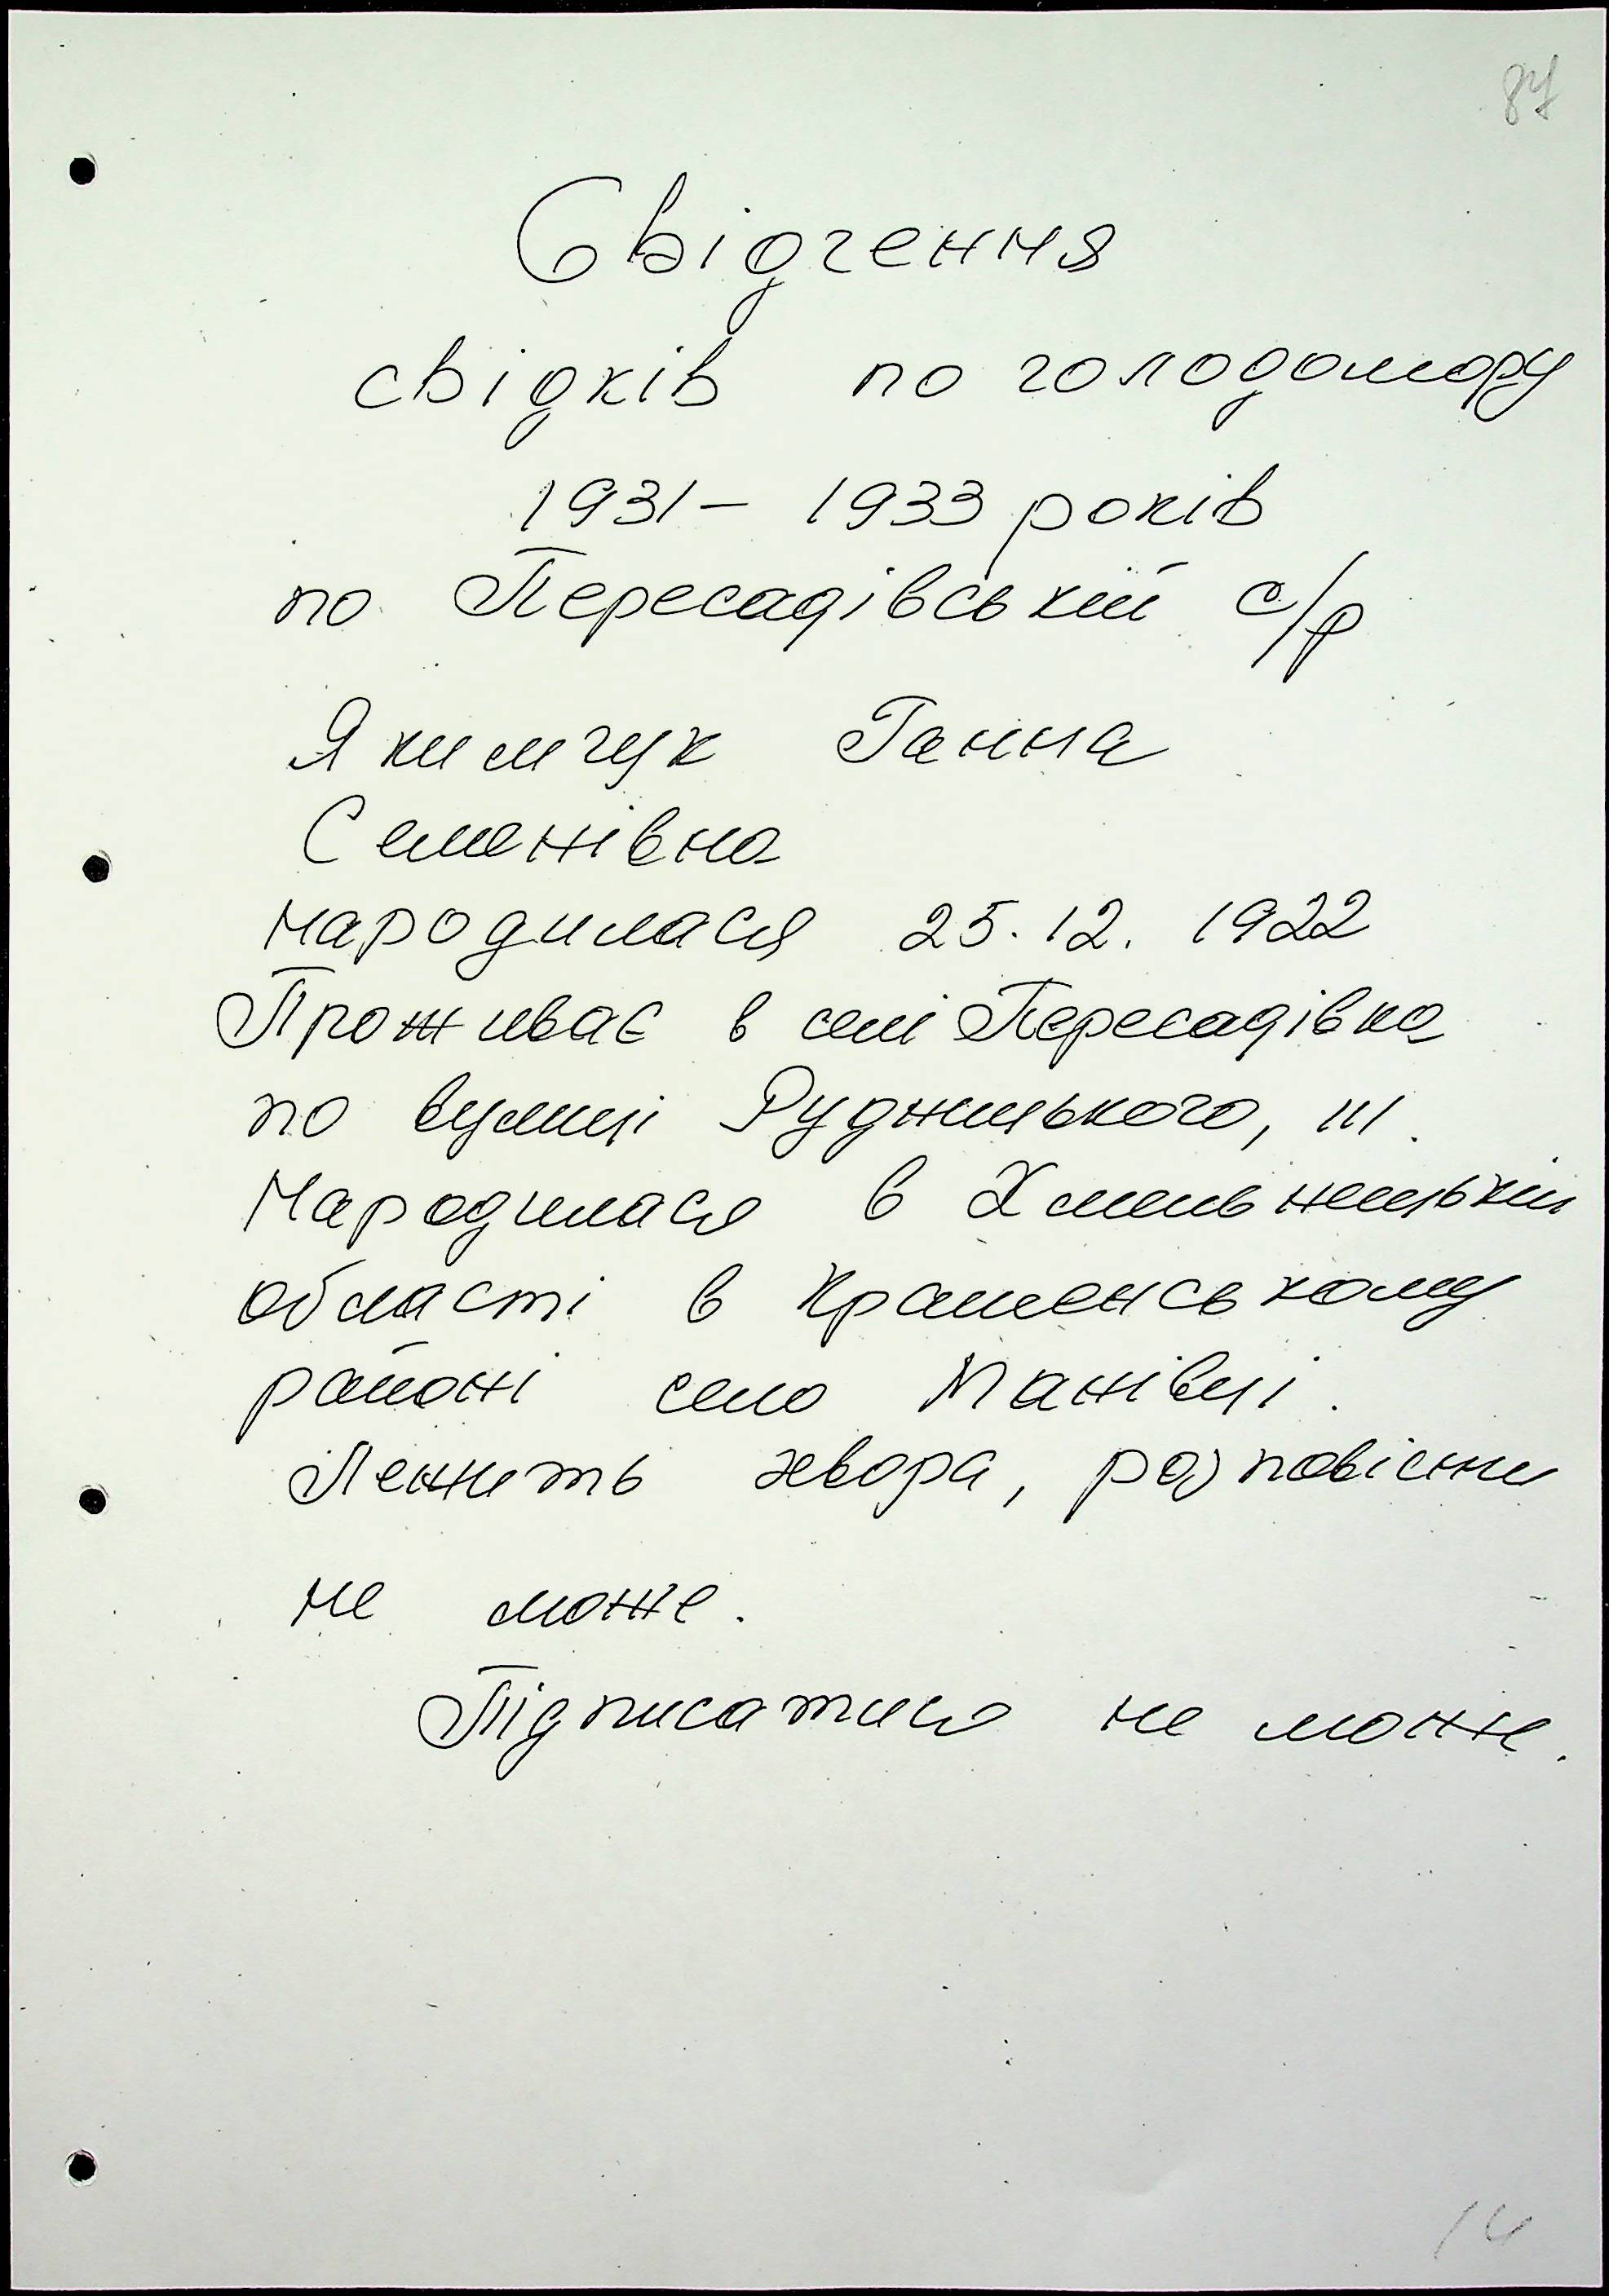 87
Свідчення
свідків по голодомору
1931 – 1933 років
по Пересадівській с/р
Якимчук Ганна
Семенівна
народилася 25.12.1922
Проживає в селі Пересадівка
по вулиці Рудницького, 111.
Народилася в Хмельницькій
області в Крашенському
районі село Манівці.
Лежить хвора, розповісти
не може.
Підписатися не може.
14